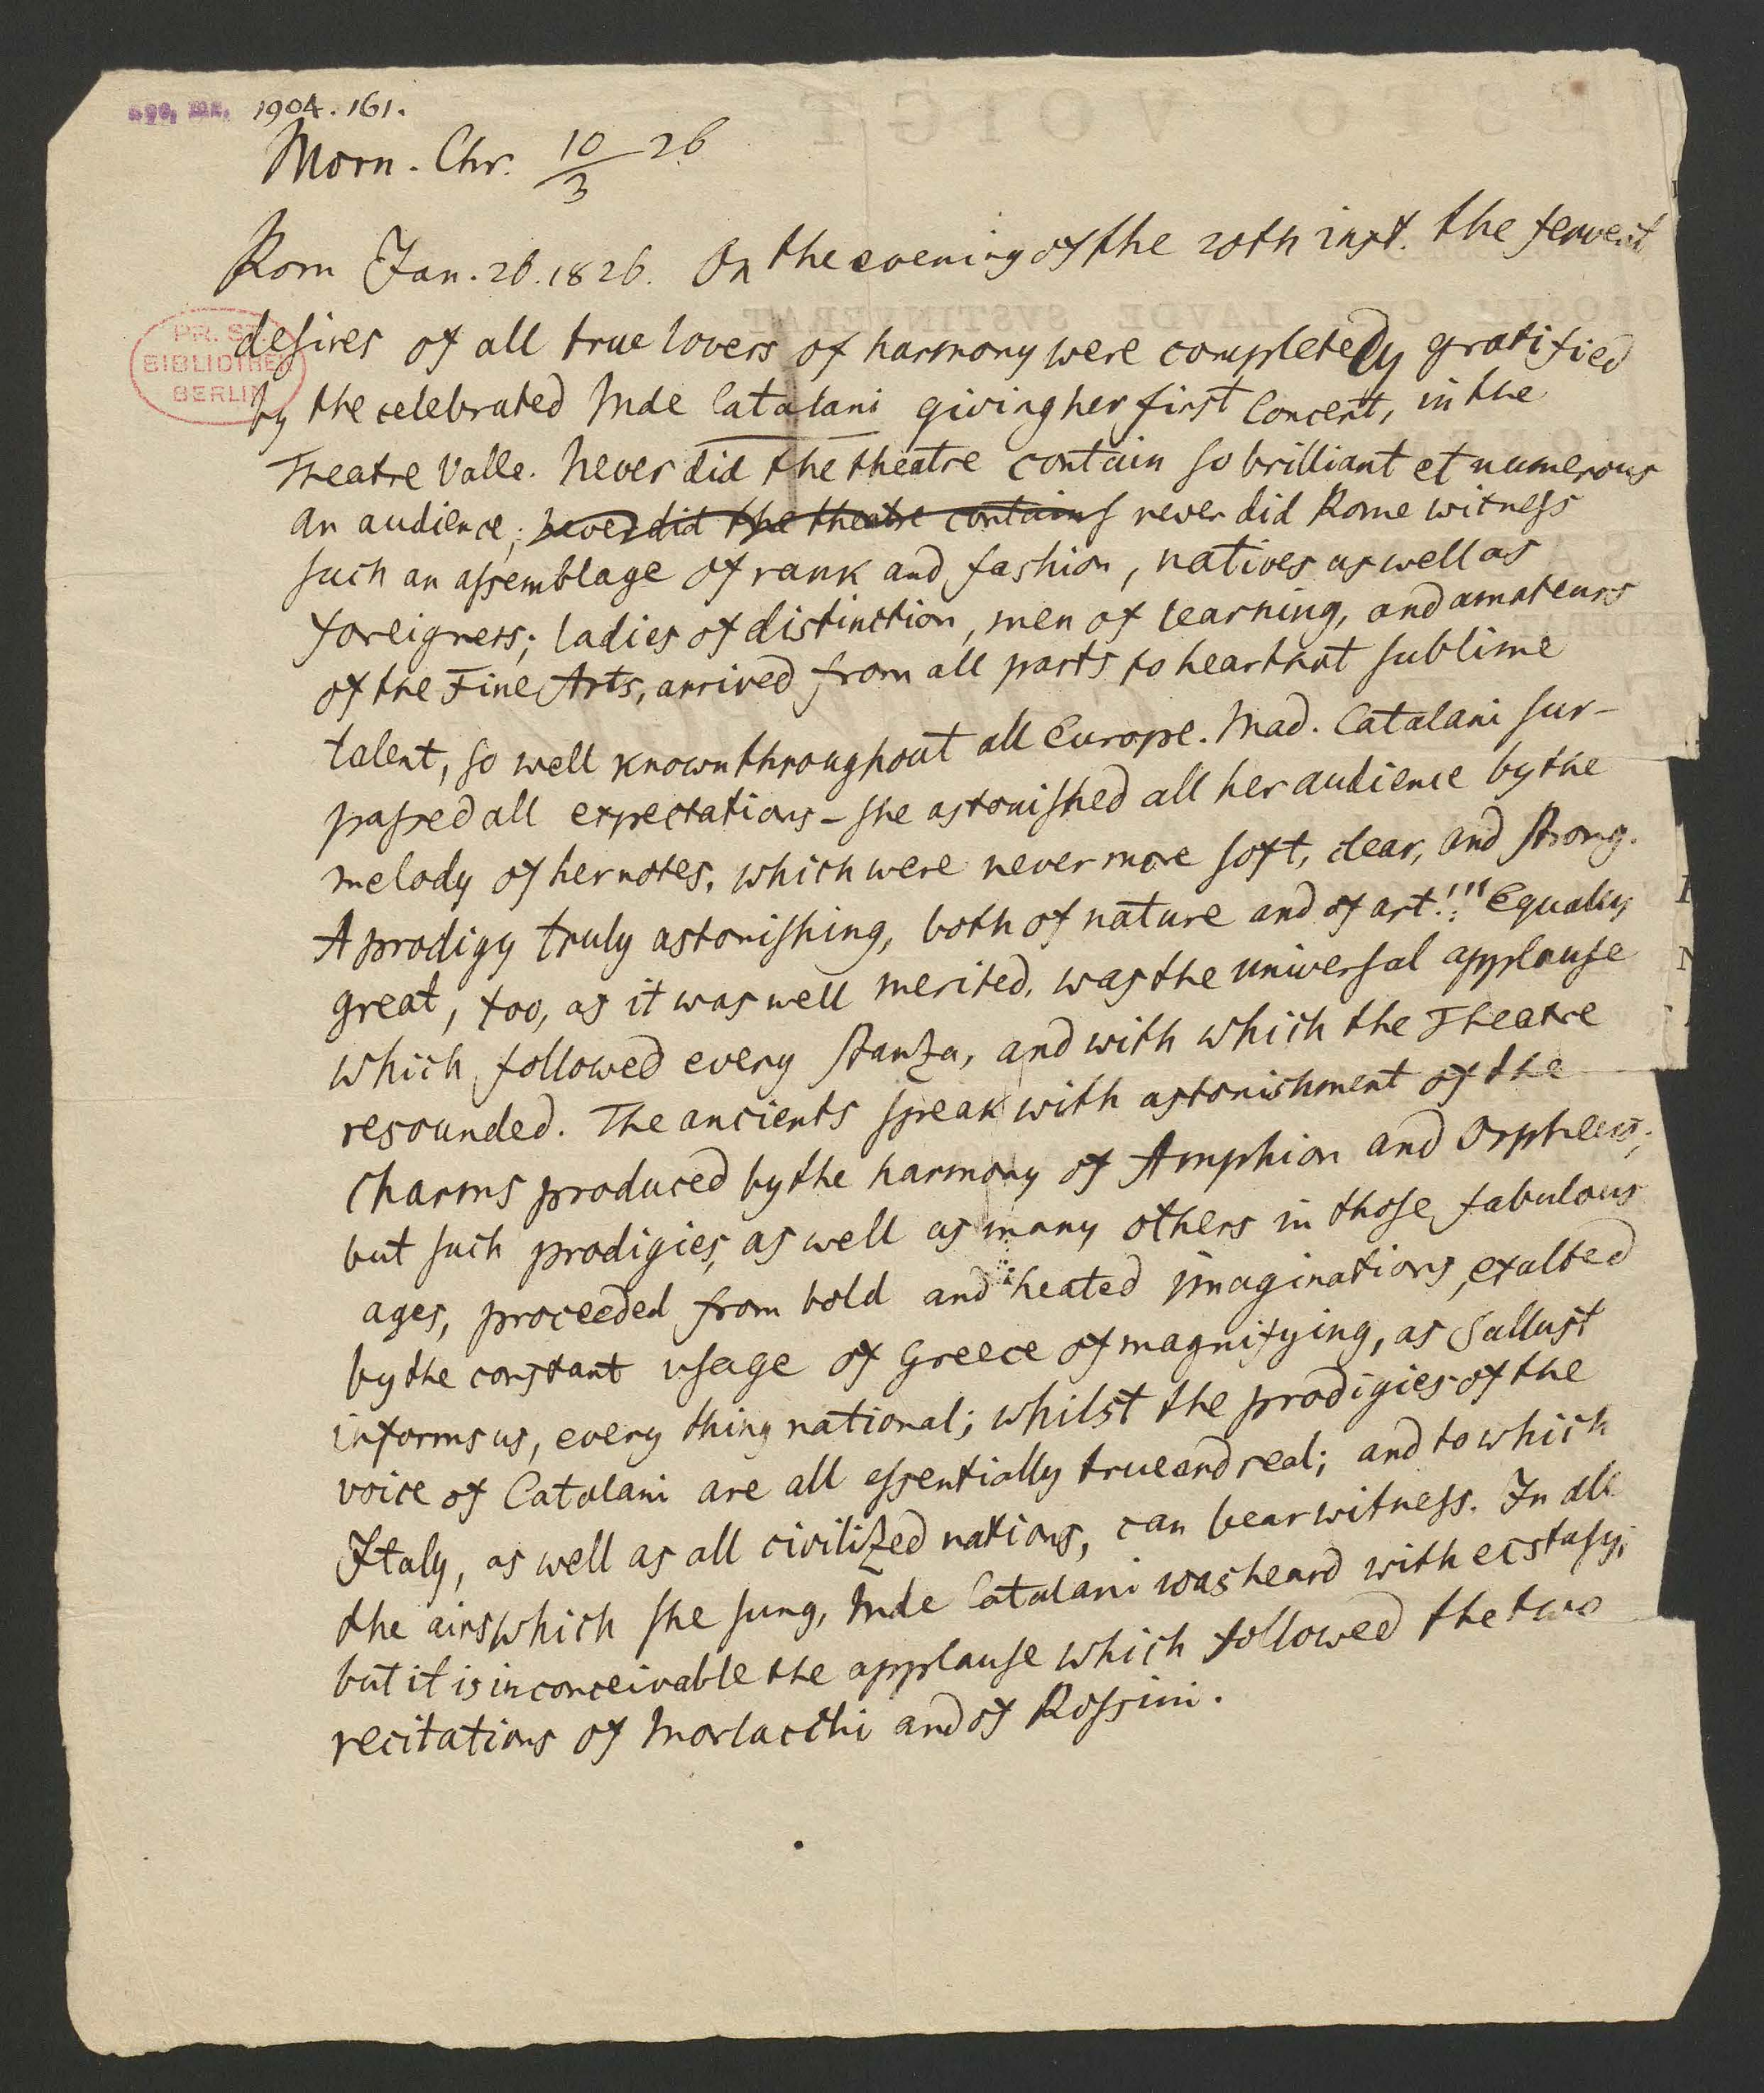 1904.161.
Morn. Chr. 10/3 26
Rom Jan. 26. 1826. On the evening of the 20th inst. the fervent
PR. ST.
BIBLIOTHEK
BERLIN
desires of all true lovers of harmony were completely gratified
by the celebrated Mde Catalani giving her first Concert, in the
Theatre Valle. Never did the theatre contain so brilliant et numerous
an audience; never did the theatre contains never did Rome witness
such an assemblage of rank and fashion, natives as well as
foreigners; ladies of distinction, men of learning, and amateurs
of the Fine Arts, arrived from all parts to hear that sublime
talent, so well known throughout all Europe. Mad. Catalani sur-
passed all expectations - she astonished all her audience by the
melody of her notes, which were never more soft, clear, and strong.
A prodigy truly astonishing, both of nature and of art!!!" Equally
great, too, as it was well merited, was the universal applause
which followed every stanza, and with which the Theatre
resounded. The ancients speak with astonishment of the
charms produced by the harmony of Amphion and Orpheus;
but such prodigies, as well as many others in those fabulous
ages, proceeded from bold and heated imaginations, exalted
by the constant usage of Greece of magnifying, as Sallust
informs us, every thing national; whilst the prodigies of the
voice of Catalani are all essentially true and real; and to which
Italy, as well as all civilized nations, can bear witness. In all
the airs which she sung, Mde Catalani was heard with ecstasy;
but it is inconceivable the applause which followed the two
recitations of Morlacchi and of Rossini.